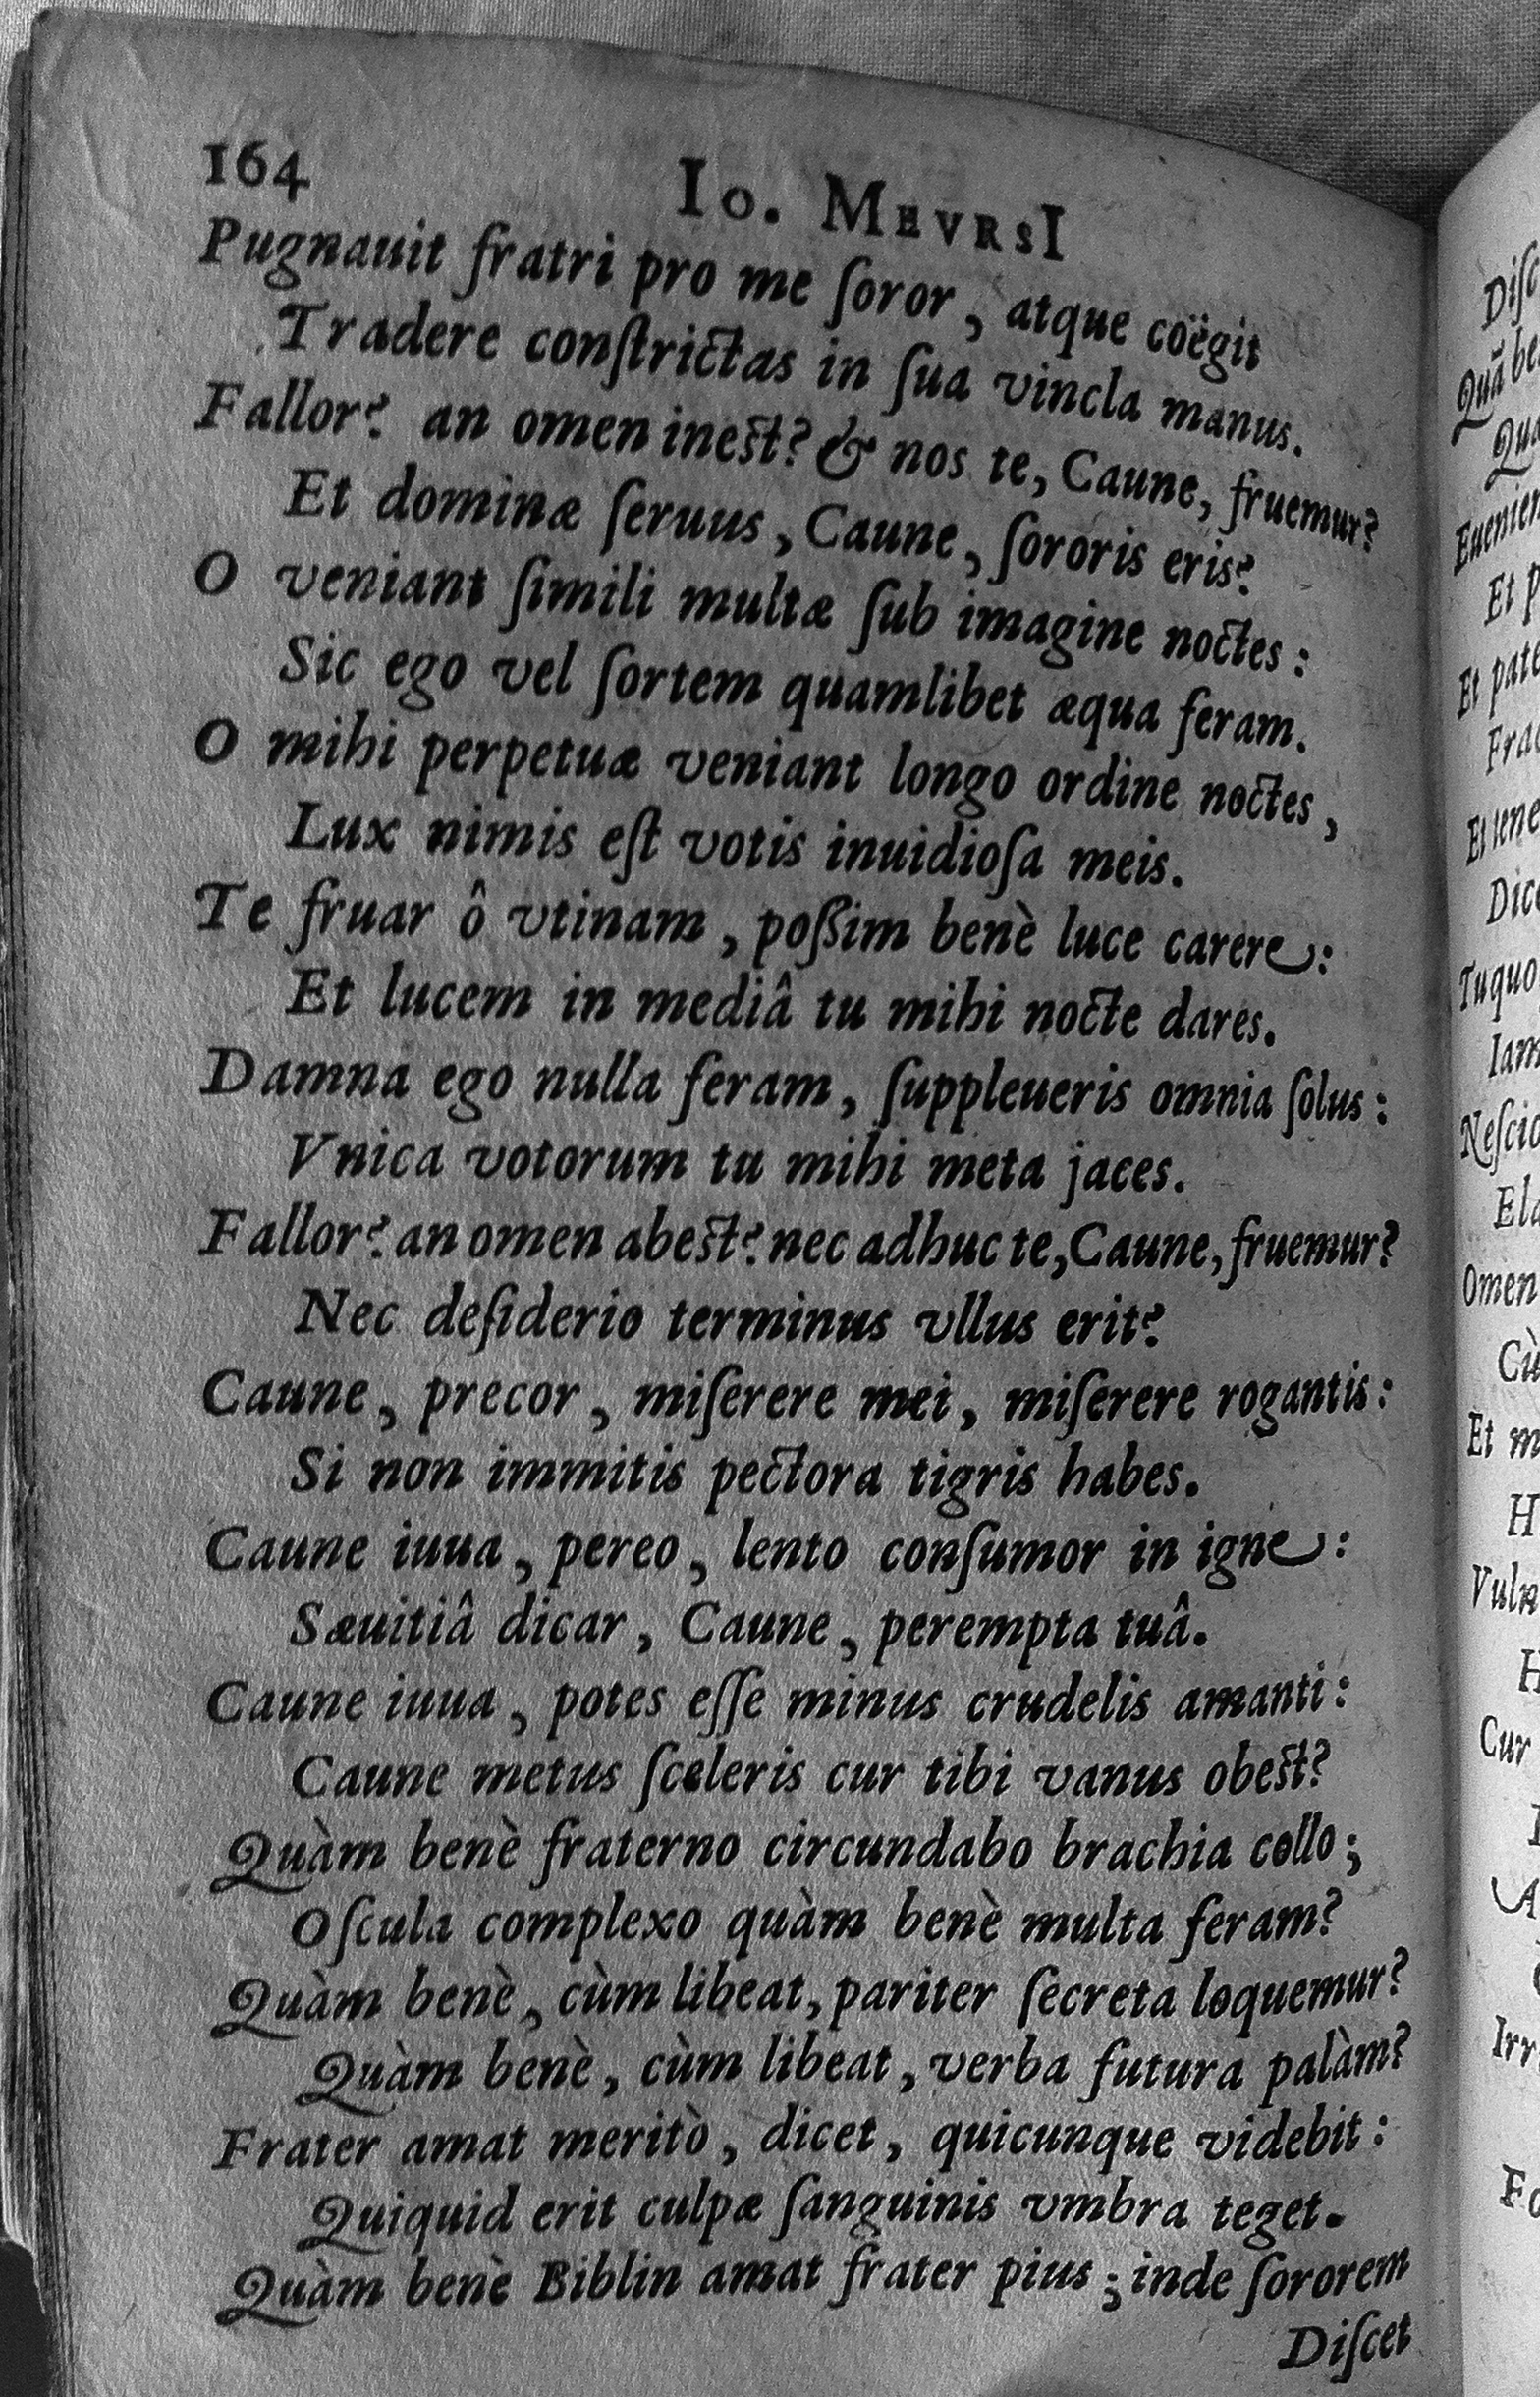 164
Io. Mevrsi
Pugnauit fratri pro me ſoror, atque coëgit
Tradere conſtrictas in ſua vincla manus.
Fallor? an omen inest? & nos te, Caune, fruemur?
Et dominæ ſeruus, Caune, ſororis eris?
O veniant ſimili multæ ſub imagine noctes:
Sic ego vel ſortem quamlibet æqua feram.
O mihi perpetuæ veniant longo ordine noctes,
Lux nimis eſt votis inuidioſa meis.
Te fruar ô vtinam, poſſim benè luce carere:
Et lucem in mediâ tu mihi nocte dares.
Damna ego nulla feram, ſuppleueris omnia ſolus:
Vnica votorum tu mihi meta jaces.
Fallor? an omen abest? nec adhuc te, Caune, fruemur?
Nec deſiderio terminus vllus erit?
Caune, precor, miſerere mei, miſerere rogantis:
Si non immitis pectora tigris habes.
Caune iuua, pereo, lento conſumor in igne:
Sæuitiâ dicar, Caune, perempta tuâ.
Caune iuua, potes eſſe minus crudelis amanti:
Caune metus ſceleris cur tibi vanus obest?
Quàm benè fraterno circundabo brachia collo;
Oſcula complexo quàm benè multa feram?
Quàm benè, cùm libeat, pariter ſecreta loquemur?
Quàm benè, cùm libeat, verba futura palàm?
Frater amat meritò, dicet, quicunque videbit:
Quiquid erit culpæ ſanguinis vmbra teget.
Quàm benè Biblin amat frater pius; inde ſororem
Diſcet
Et p
Dice
Omen
Et m
Cur